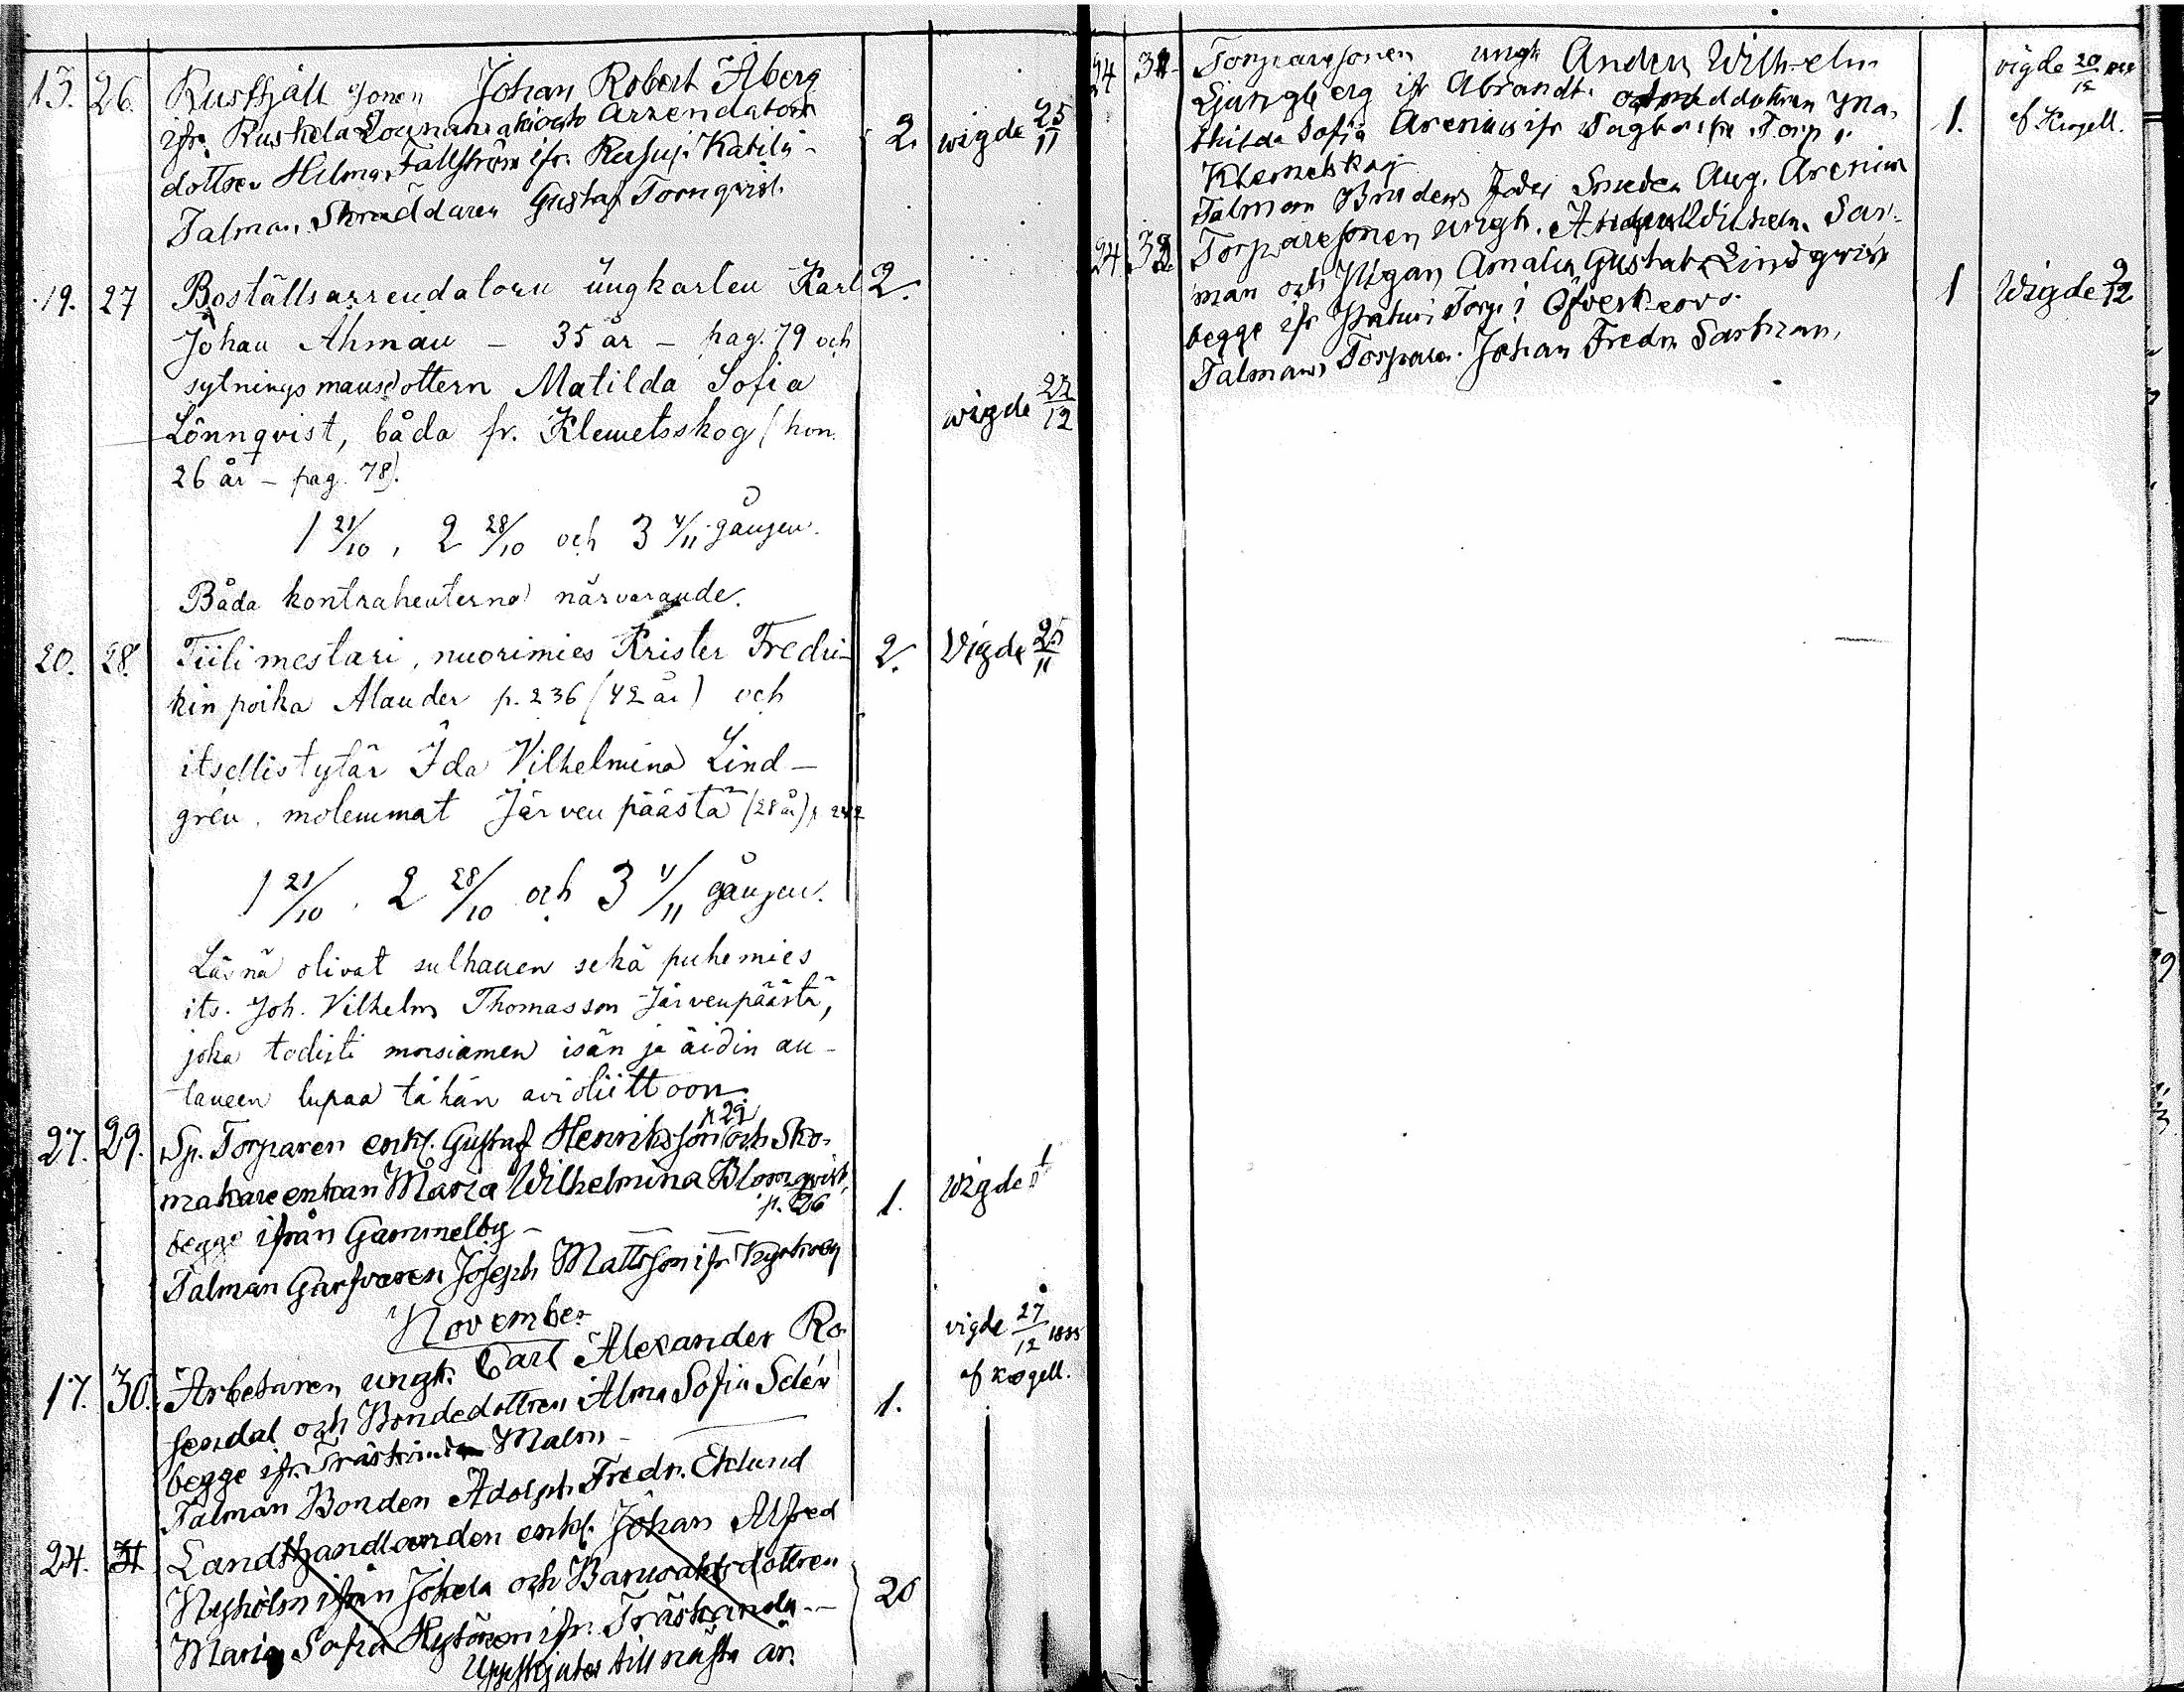 13. 26. Rusthåll sonen Johan Robert Åberg
ifr. Ruskela och Arrendators
dottren Hilma Fallström ifr. Katila
Talman Skräddaren Gustaf Tornqvist.
2. wigde 25/11
19. 27 Boställsarrendatorn ungkarlen Karl
Johan Åhman – 35 år – pag. 79 och
sytningsmansdottern Matilda Sofia
Lönnqvist, båda fr. Klemetsskog (hon
26 år – pag. 78).
2. wigde 27/12
1 21/10, 2 28/10 och 3 4/11 gången.
Båda kontrahenterna närvarande.
20. 28. Tiilimestari, nuorimies Krister Fredri-
kin poika Alander p. 236 (42 år) och
itsellistytär Ida Vilhelmina Lind-
gren, molemmat Järvenpäästä (28 år) p. 242
2. Vigde 25/11
1 21/10, 2 28/10 och 3 4/11 gången.
Läsnä olivat sulhanen sekä puhemies
its. Joh. Vilhelm Thomasson Järvenpäästä,
joka todisti morsiamen isän ja äidin an-
taneen lupaa tähän avioliittoon.
27. 29. Sp. Torparen enkl. Gustaf Henriksson p 29 och Sko-
makareenkan Maria Wilhelmina Blomqvist,
p. 26
begge ifrån Gammelby –
Talman Garfvaren Joseph Mattsson ifr. Kyrkoby
1. wigde
November
17. 30. Arbetaren ungk. Carl Alexander Ro-
sendal och Bondedottren Alma Sofia Sdén
begge ifr. Träskända Malm –
Talman Bonden Adolph Fredr. Eklund
1. vigde 27/12 1888
af Krogell.
24. 31 Landthandlanden enkl. Johan Alfred
Nyholm ifrån Jokela och Banvaktsdottren
Maria Sofia Hytönen ifr. Träskända –
Uppskjutes till nästa år.
20
24 31 Torparesonen ungk Anders Wilhelm
Ljungberg ifr Abrandt. och Smeddottren Ma-
thilda Sofia Arenius ifr Torp i
Klemetskog
Talman Brudens Fader Smeden Aug. Arenius
1. vigde 20/12 1888
af Krogell.
24 32 Torparesonen ungk. August Wilhelm Sax-
man och Pigan Amalia Gustafva Lindqvist
begge ifr Torp i Öfverkervo.
Talman Torparen Johan Fredr. Saxman.
1 Wigde 9/12